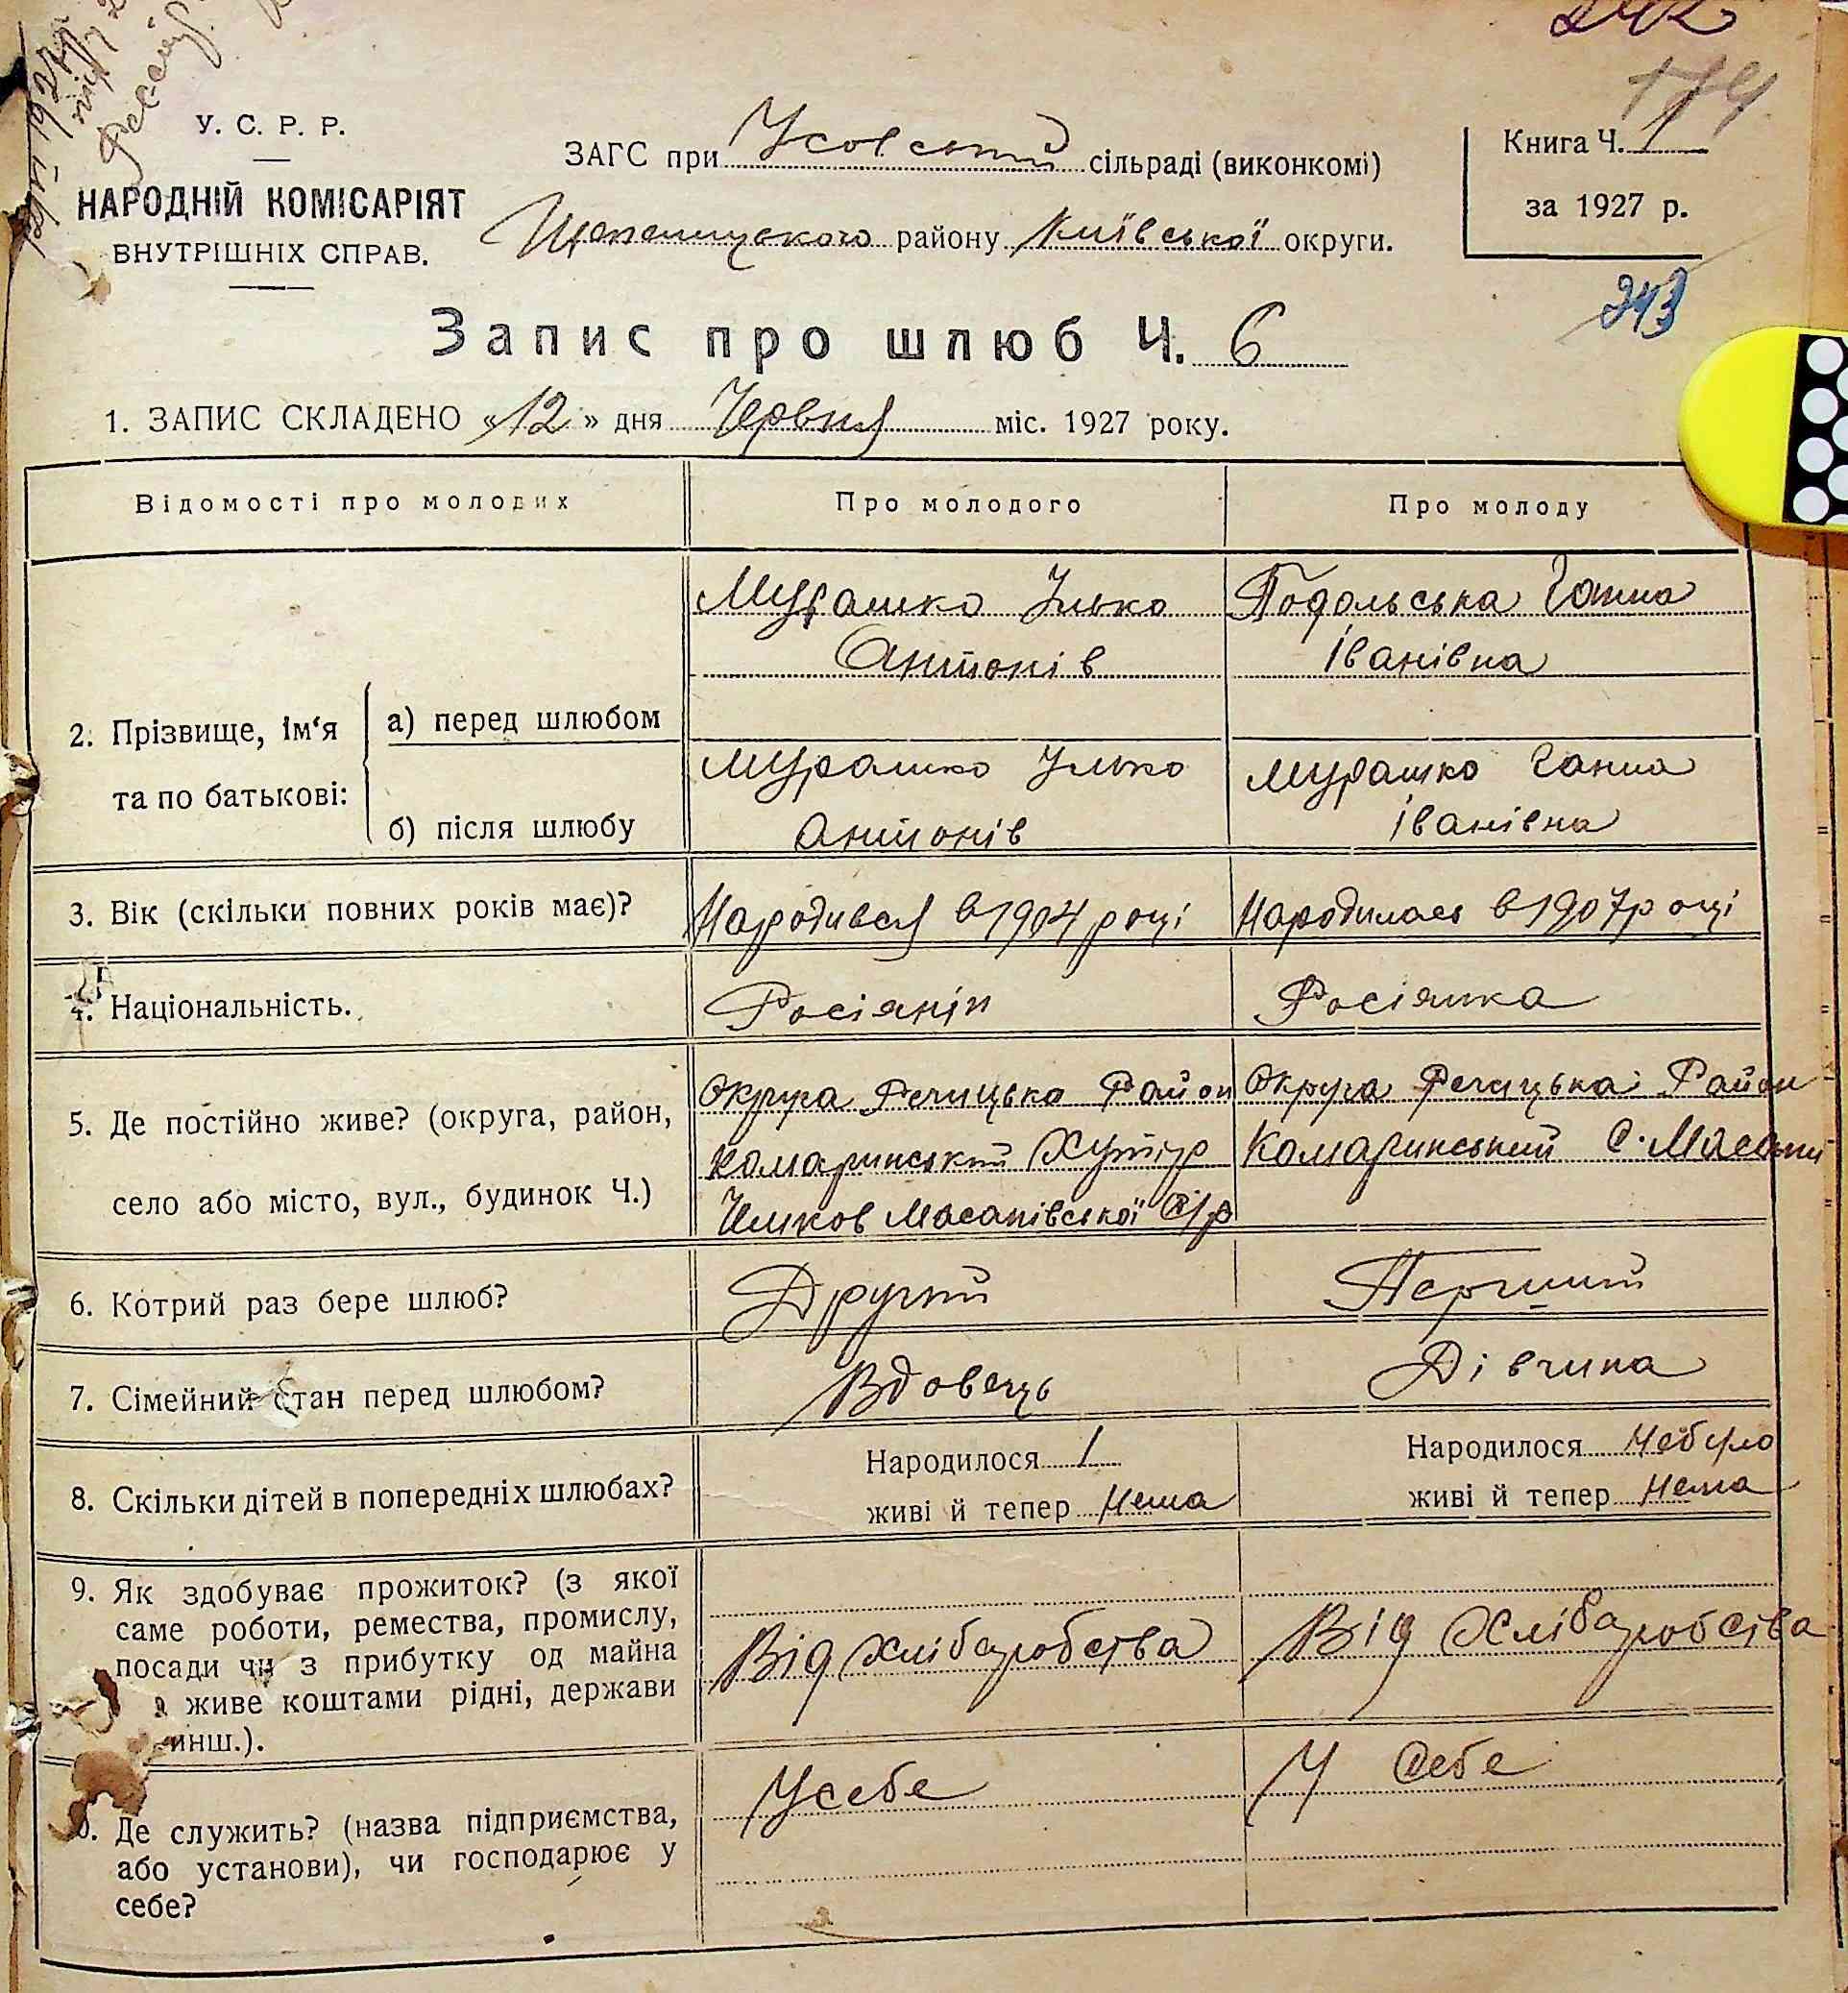 242
174
У. С. Р. Р.
НАРОДНІЙ КОМІСАРІЯТ
ВНУТРІШНІХ СПРАВ.
ЗАГС при Усовський сільраді (виконкомі)
району Київської округи.
Книга Ч. 1
за 1927 р.
243
Запис про шлюб Ч. 6
1. ЗАПИС СКЛАДЕНО «12» дня Червня міс. 1927 року.
Відомості про молодих Про молодого Про молоду
Мурашко Ілько Подольська Ганна
Антонів Іванівна
2. Прізвище, ім‘я та по батькові: а) перед шлюбом
Мурашко Ілько Мурашко Ганна
Антонів Іванівна
б) після шлюбу
3. Вік (скільки повних років має)? Народився в 1904 році Народилась в 1907 році
4. Національність. Росіянін Росіянка
5. Де постійно живе? (округа, район, село або місто, вул., будинок Ч.)
Округа Речицька Район Округа Речицька Район
Комаринський Хутір Комаринський С. Масани
Масанівської С/р
6. Котрий раз бере шлюб? Другий Перший
7. Сімейний стан перед шлюбом? Вдовець Дівчина
8. Скільки дітей в попередніх шлюбах? Народилося 1 Народилося Небуло
живі й тепер Нема живі й тепер Нема
9. Як здобуває прожиток? (з якої
саме роботи, ремества, промислу,
посади чи з прибутку од майна
живе коштами рідні, держави
инш.).
Від Хліборобства Від Хліборобства
Усебе У Себе
Де служить? (назва підприємства,
або установи), чи господарює у
себе?